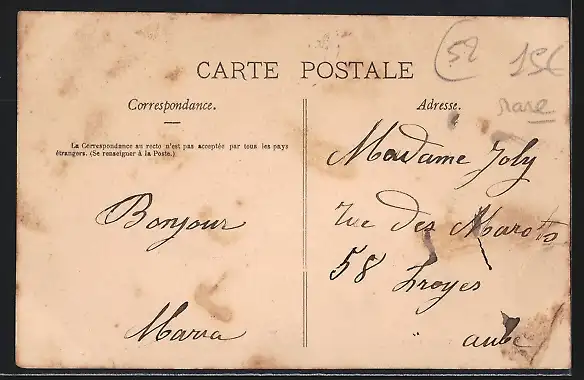 52 15€
rare
CARTE POSTALE
Correspondance.
La Correspondance au recto n'est pas acceptée par tous les pays
étrangers. (Se renseigner à la Poste.)
Bonjour
Maria
Adresse.
Madame Joly
rue des Marots
58 Troyes
aube